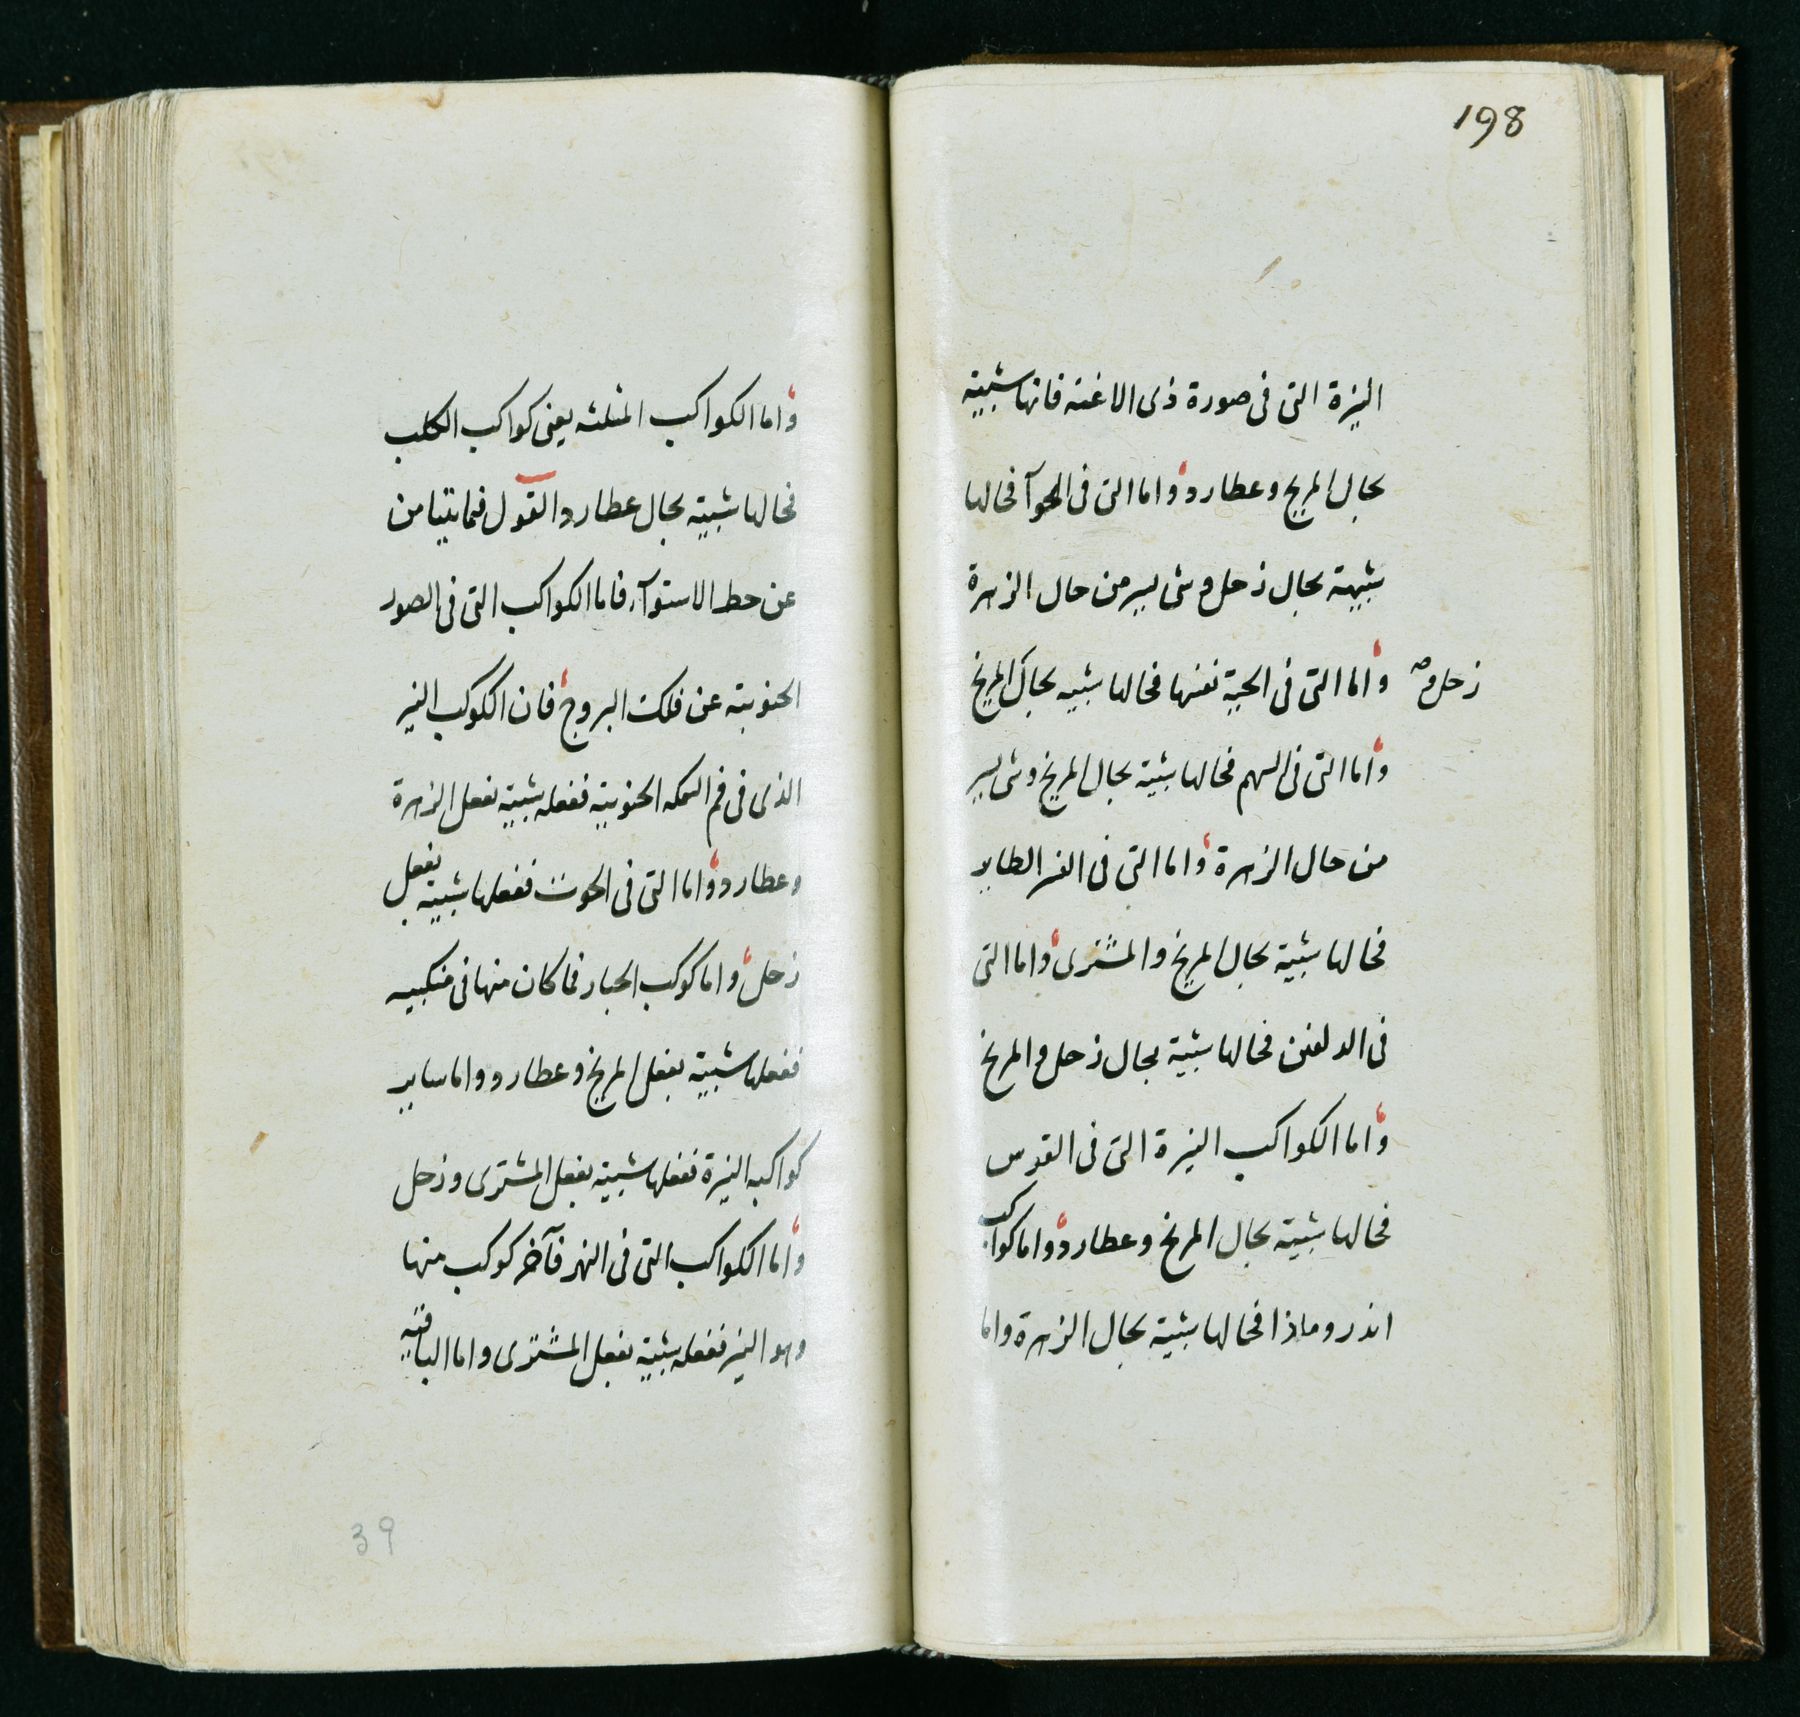 198
النيرة التى فى صورة ذى الاعنه فانها شبيه
بحال المريخ وعطارد واما التى فى الحوآ فحالها
شبيهة بحال زحل وشى يسير من حال الزهرة
واما التى فى الحية نفسها فحالها شبيه بحال المريخ
زحل و صح
واما التى فى السهم فحالها شبية بحال المريخ وشى يسير
من حال الزهرة واما التى فى النسر الطاير
فحالها شبية بحال المريخ والمشترى واما التى
فى الدلفين فحالها شبية بحال زحل والمريخ
واما الكواكب النيرة التى فى القوس
فحالها شبية بحال المريخ وعطارد واما كواكب
اندروماذا فحالها شبية بحال الزهرة واما
واما الكواكب المثلثه يعنى كواكب الكلب
فحالها شبية بحال عطارد القول فيما يتيامن
عن خط الاستوآء فاما الكواكب التى فى الصور
الجنوبية عن فلك البروج فان الكوكب النير
الذى فى فم السمكه الجنوبية ففعله شبية بفعل الزهرة
وعطارد واما التى فى الحوت ففعلها شبية بفعل
زحل واما كوكب الجبار فما كان منها فى منكبيه
ففعلها شبية بفعل المريخ وعطارد واما ساير
كواكبه النيرة ففعلها شبية بفعل المشترى وزحل
واما الكواكب التى فى النهر فآخر كوكب منها
وهو النير ففعله شبية بفعل المشترى واما الباقيه
39